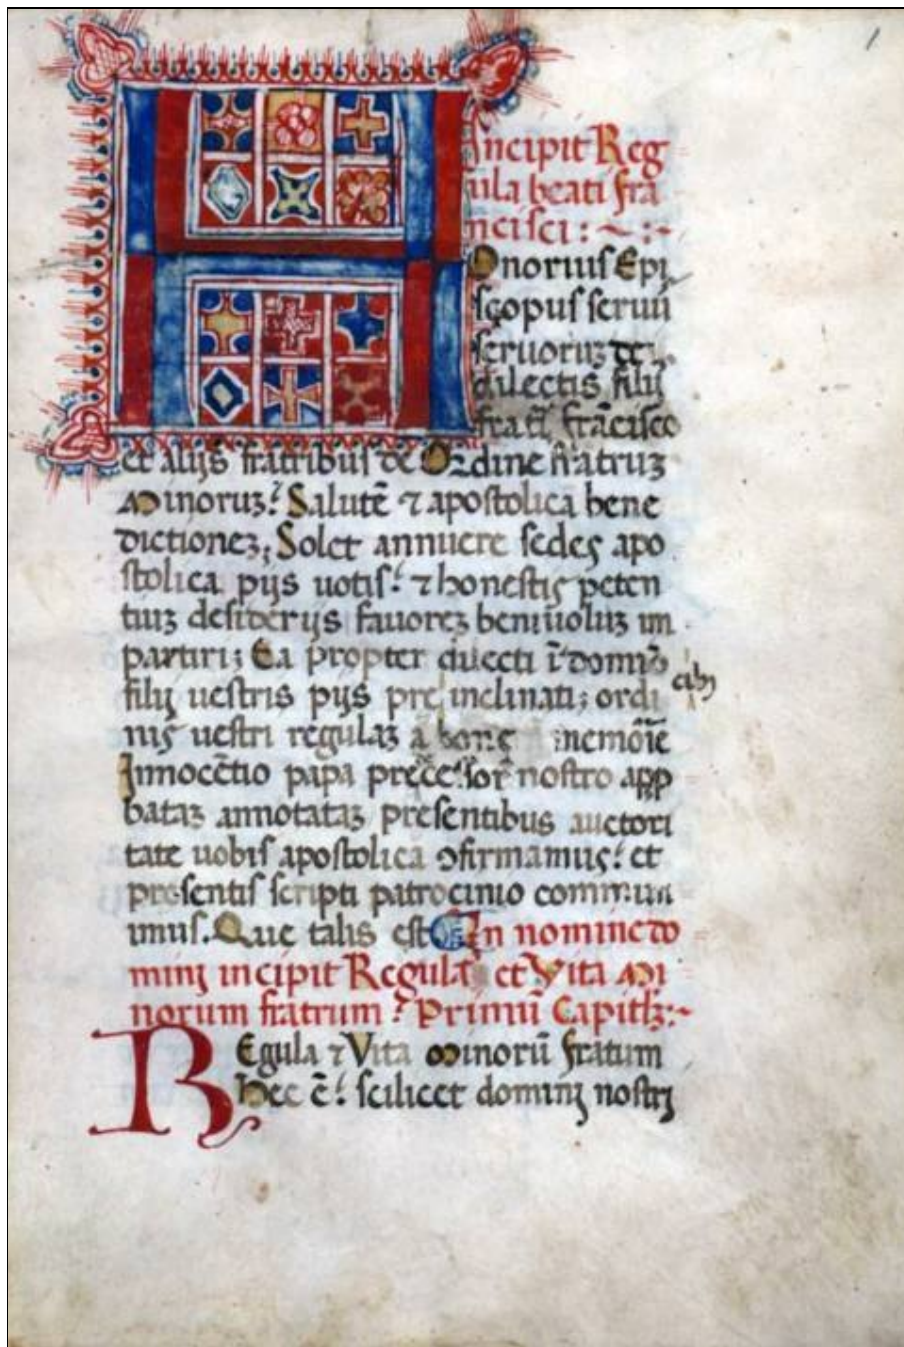 1
Incipit Reg
ula beati fra
ncisci : ~ : ~
Onorius Epi
scopus seruus
seruoruꝫ dei.
dilectis filijs
frat̃i frãcisco
et alijs fratribus de Ordine fratruꝫ
Minoruꝫ: Salutẽ ⁊ apostolica bene
dictioneꝫ. Solet annuere sedes apo
stolica pijs uotis: ⁊ honestis peten
tiuꝫ desiderijs fauoreꝫ beniuoluꝫ im
partiri; Ea propter dilecti ĩ domino
filij uestris pijs pre inclinati; ordi
cibꝫ
nis uestri regulaꝫ a bone memoĩe
Innocẽtio papa precessor̃ nostro app
bataꝫ annotataꝫ presentibus auctori
tate uobis apostolica ꝯfirmamus: et
presentis scripti patrocinio commun
imus. Que talis est In nomine do
minj incipit Regula et Vita Mi
norum fratrum: Primũ Capitlꝫ:~
REgula ⁊ Vita Minorũ fratum
hec ẽ: scilicet dominj nostrj